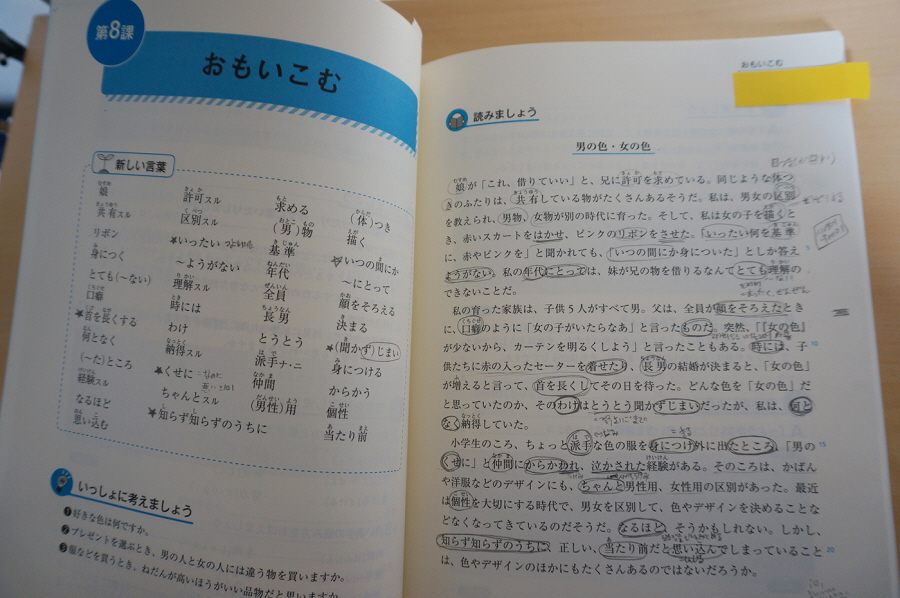 第8課
おもいこむ
新しい言葉
娘 許可スル 求める
共有スル 区別スル (体)つき
リボン ★いったい (男)物
身につく 〜ようがない 基準 描く
とても(〜ない) 理解スル 年代 ☆いつの間にか
口癖 時には 全員 〜にとって
★首を長くする わけ 長男 顔をそろえる
何となく 納得スル とうとう 決まる
(〜た)ところ ★くせに 派手ナ・ニ ★(聞かず)じまい
経験スル ちゃんとスル 仲間 身につける
なるほど ★知らず知らずのうちに (男性)用 からかう
思い込む 個性
当たり前
いっしょに考えましょう
❶好きな色は何ですか。
❷プレゼントを選ぶとき、男の人と女の人には違う物を買いますか。
❸服などを買うとき、ねだんが高いほうがいい品物だと思いますか。
おもいこむ
読みましょう
男の色・女の色
娘が「これ、借りていい」と、兄に許可を求めている。同じような体つ
きのふたりは、共有している物がたくさんあるそうだ。私は、男女の区別
を教えられ、男物、女物が別の時代に育った。そして、私は女の子を描くと
き、赤いスカートをはかせ、ピンクのリボンをさせた。「いったい何を基準
に、赤やピンクを」と聞かれても、「いつの間にか身についた」としか答え 5
ようがない。私の年代にとっては、妹が兄の物を借りるなんてとても理解の
できないことだ。
私の育った家族は、子供5人がすべて男。父は、全員が顔をそろえたとき
に、口癖のように「女の子がいたらなあ」と言ったものだ。突然、「『女の色』
が少ないから、カーテンを明るくしよう」と言ったこともある。時には、子 10
供たちに赤の入ったセーターを着せたり、長男の結婚が決まると、「女の色」
が増えると言って、首を長くしてその日を待った。どんな色を「女の色」だ
と思っていたのか、そのわけはとうとう聞かずじまいだったが、私は、何と
なく納得していた。
小学生のころ、ちょっと派手な色の服を身につけ外に出たところ、「男の 15
くせに」と仲間にからかわれ、泣かされた経験がある。そのころは、かばん
や洋服などのデザインにも、ちゃんと男性用、女性用の区別があった。最近
は個性を大切にする時代で、男女を区別して、色やデザインを決めることな
どなくなってきているのだそうだ。なるほど、そうかもしれない。しかし、
知らず知らずのうちに、正しい、当たり前だと思い込んでしまっていること 20
は、色やデザインのほかにもたくさんあるのではないだろうか。